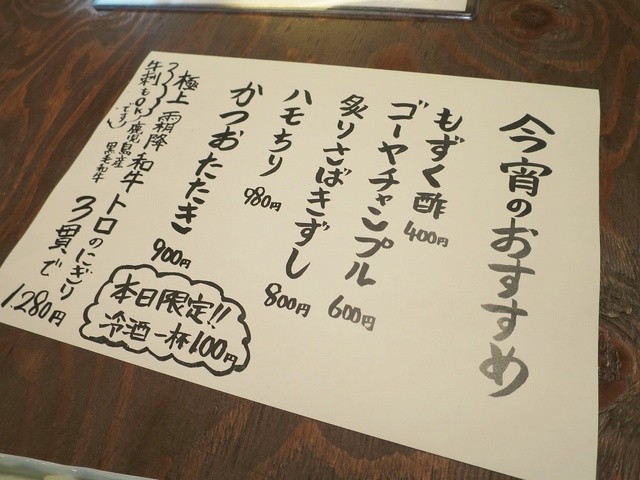 今宵のおすすめ
もずく酢 400円
ゴーヤチャンプル 600円
炙りさばきずし 800円
ハモちり 980円
かつおたたき 900円
極上 霜降和牛トロのにぎり
3貫で 1.280円
牛刺もOKです!
鹿児島産
黒毛和牛
本日限定!!
冷酒一杯100円